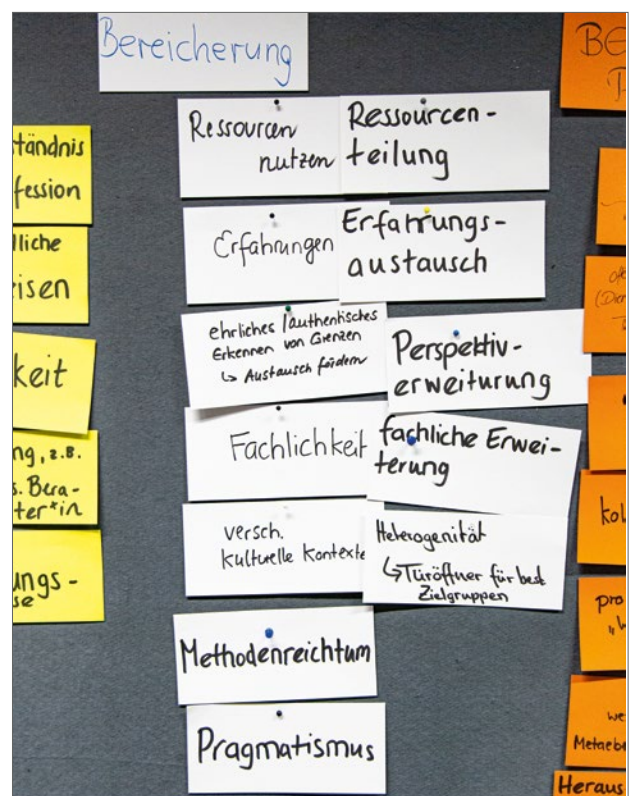 Bereicherung
Ressourcen
nutzen
Ressourcen-
teilung
Erfahrungen
Erfahrungs-
austausch
ehrliches / authentisches
Erkennen von Grenzen
↳ Austausch fördern
Perspektiv-
erweiturung
Fachlichkeit
fachliche Erwei-
terung
versch.
kulturelle Kontexte
Heterogenität
↳ Türöffner für best
Zielgruppen
Methodenreichtum
Pragmatismus
ständnis
fession
lliche
eisen
keit
ng, z.B.
s. Bera-
ter*in
ungs-
se
BE
kol
pro
we
Metaebe
Heraus